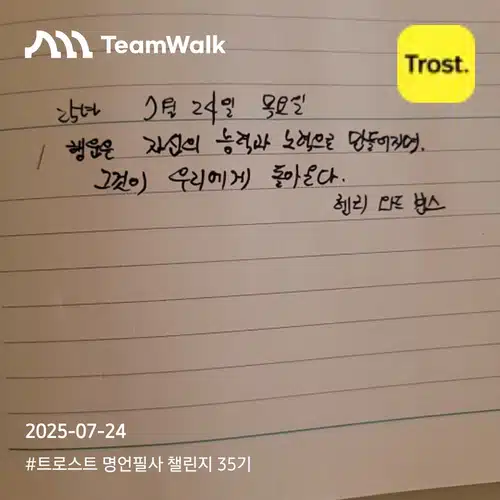 TeamWalk
Trost.
25년 7월 24일 목요일
행운은 자신의 능력과 노력으로 만들어지며,
그것이 우리에게 돌아온다.
헨리
2025-07-24
#트로스트 명언필사 챌린지 35기